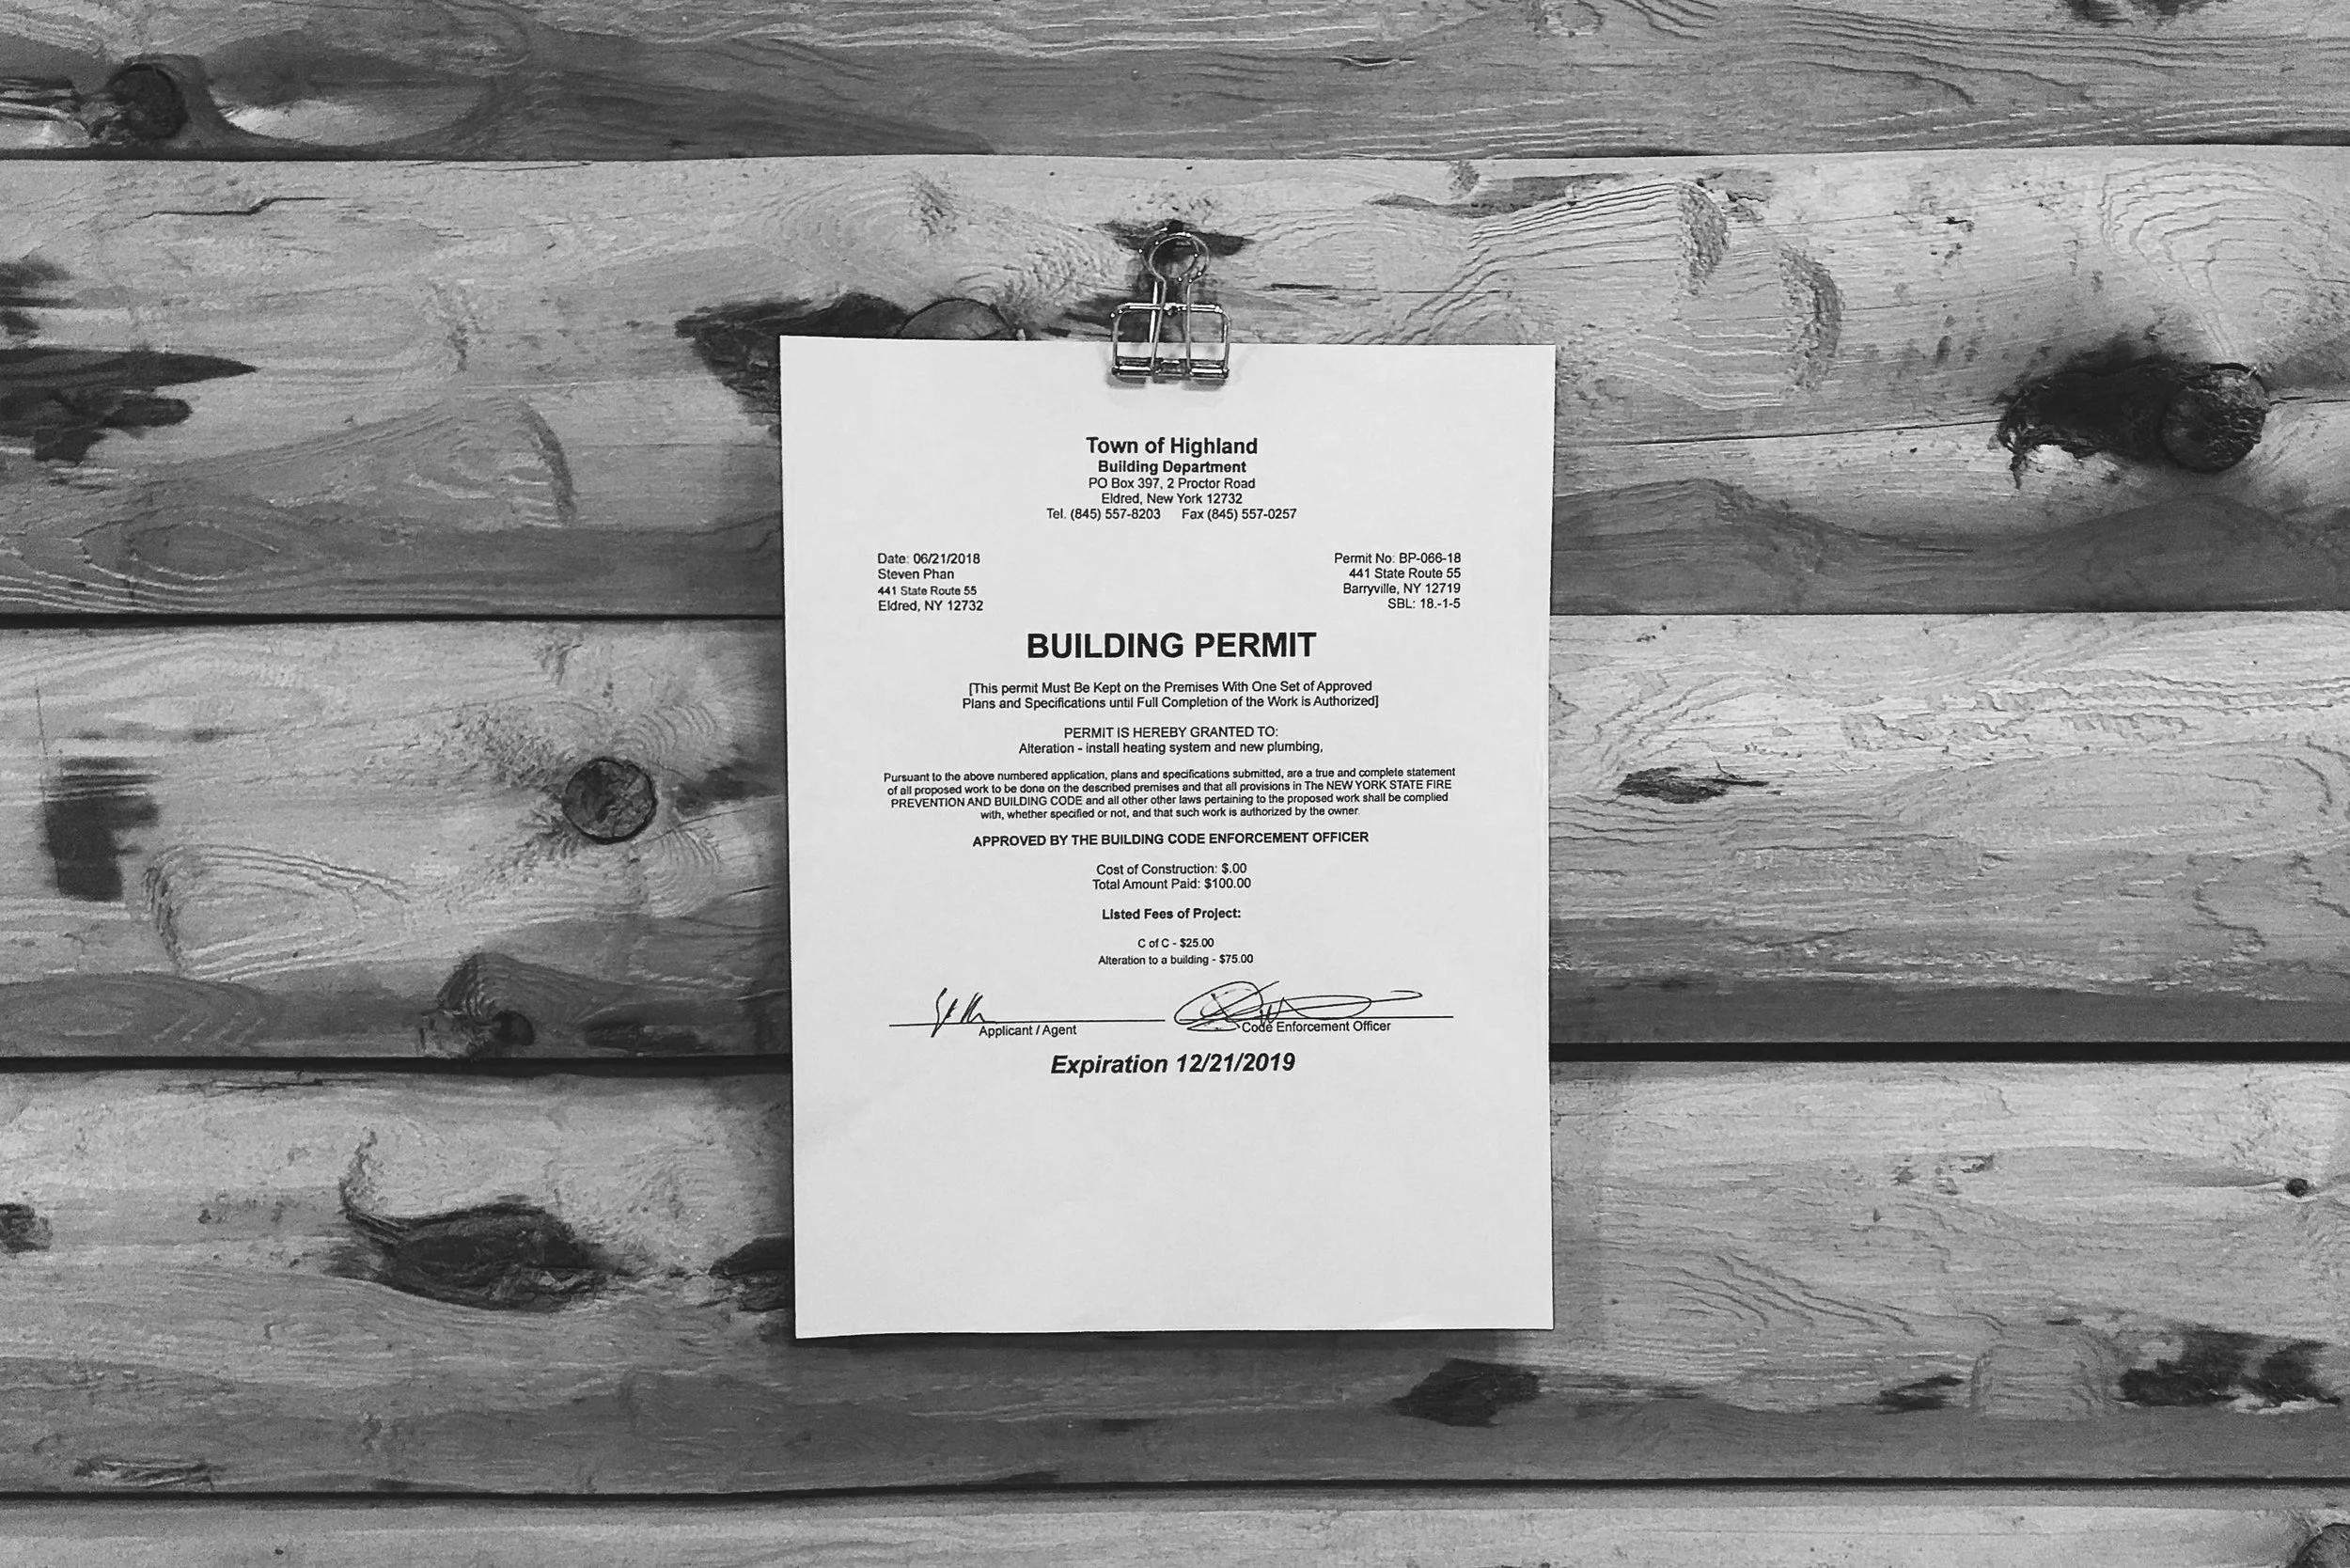 Town of Highland
Building Department
PO Box 397, 2 Proctor Road
Eldred, New York 12732
Tel. (845) 557-8203 Fax (845) 557-0257
Date: 06/21/2018
Steven Phan
441 State Route 55
Eldred, NY 12732
Permit No: BP-066-18
441 State Route 55
Barryville, NY 12719
SBL: 18.-1-5
BUILDING PERMIT
[This permit Must Be Kept on the Premises With One Set of Approved
Plans and Specifications until Full Completion of the Work is Authorized]
PERMIT IS HEREBY GRANTED TO:
Alteration - install heating system and new plumbing,
Pursuant to the above numbered application, plans and specifications submitted, are a true and complete statement
of all proposed work to be done on the described premises and that all provisions in The NEW YORK STATE FIRE
PREVENTION AND BUILDING CODE and all other other laws pertaining to the proposed work shall be complied
with, whether specified or not, and that such work is authorized by the owner.
APPROVED BY THE BUILDING CODE ENFORCEMENT OFFICER
Cost of Construction: $.00
Total Amount Paid: $100.00
Listed Fees of Project:
C of C - $25.00
Alteration to a building - $75.00
Applicant / Agent
Code Enforcement Officer
Expiration 12/21/2019